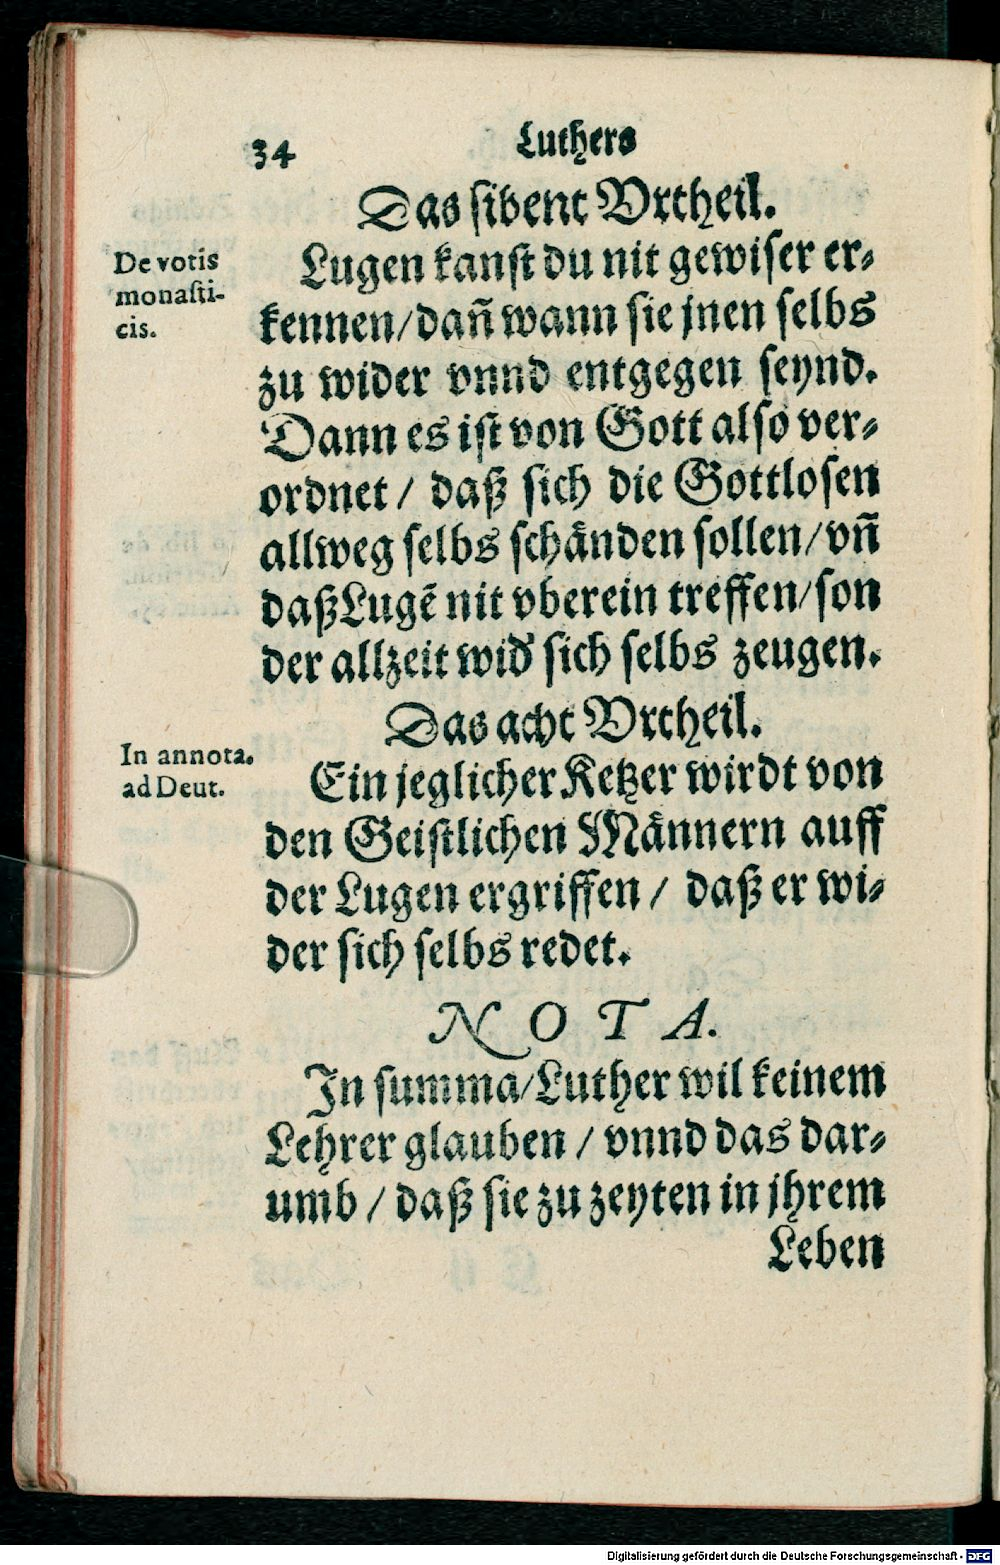 34
Luthers
Das sibent Vrtheil.
De votis
monasti-
cis.
Lugen kanst du nit gewiser er-
kennen/dañ wann sie jnen selbs
zu wider vnnd entgegen seynd.
Dann es ist von Gott also ver-
ordnet / daß sich die Gottlosen
allweg selbs schänden sollen/vñ
daß Lugẽ nit vberein treffen/son
der allzeit wid' sich selbs zeugen.
Das acht Vrtheil.
In annota.
ad Deut.
Ein jeglicher Ketzer wirdt von
den Geistlichen Männern auff
der Lugen ergriffen / daß er wi-
der sich selbs redet.
NOTA.
In summa/Luther wil keinem
Lehrer glauben / vnnd das dar-
umb / daß sie zu zeyten in jhrem
Leben
Digitalisierung gefördert durch die Deutsche Forschungsgemeinschaft - DFG